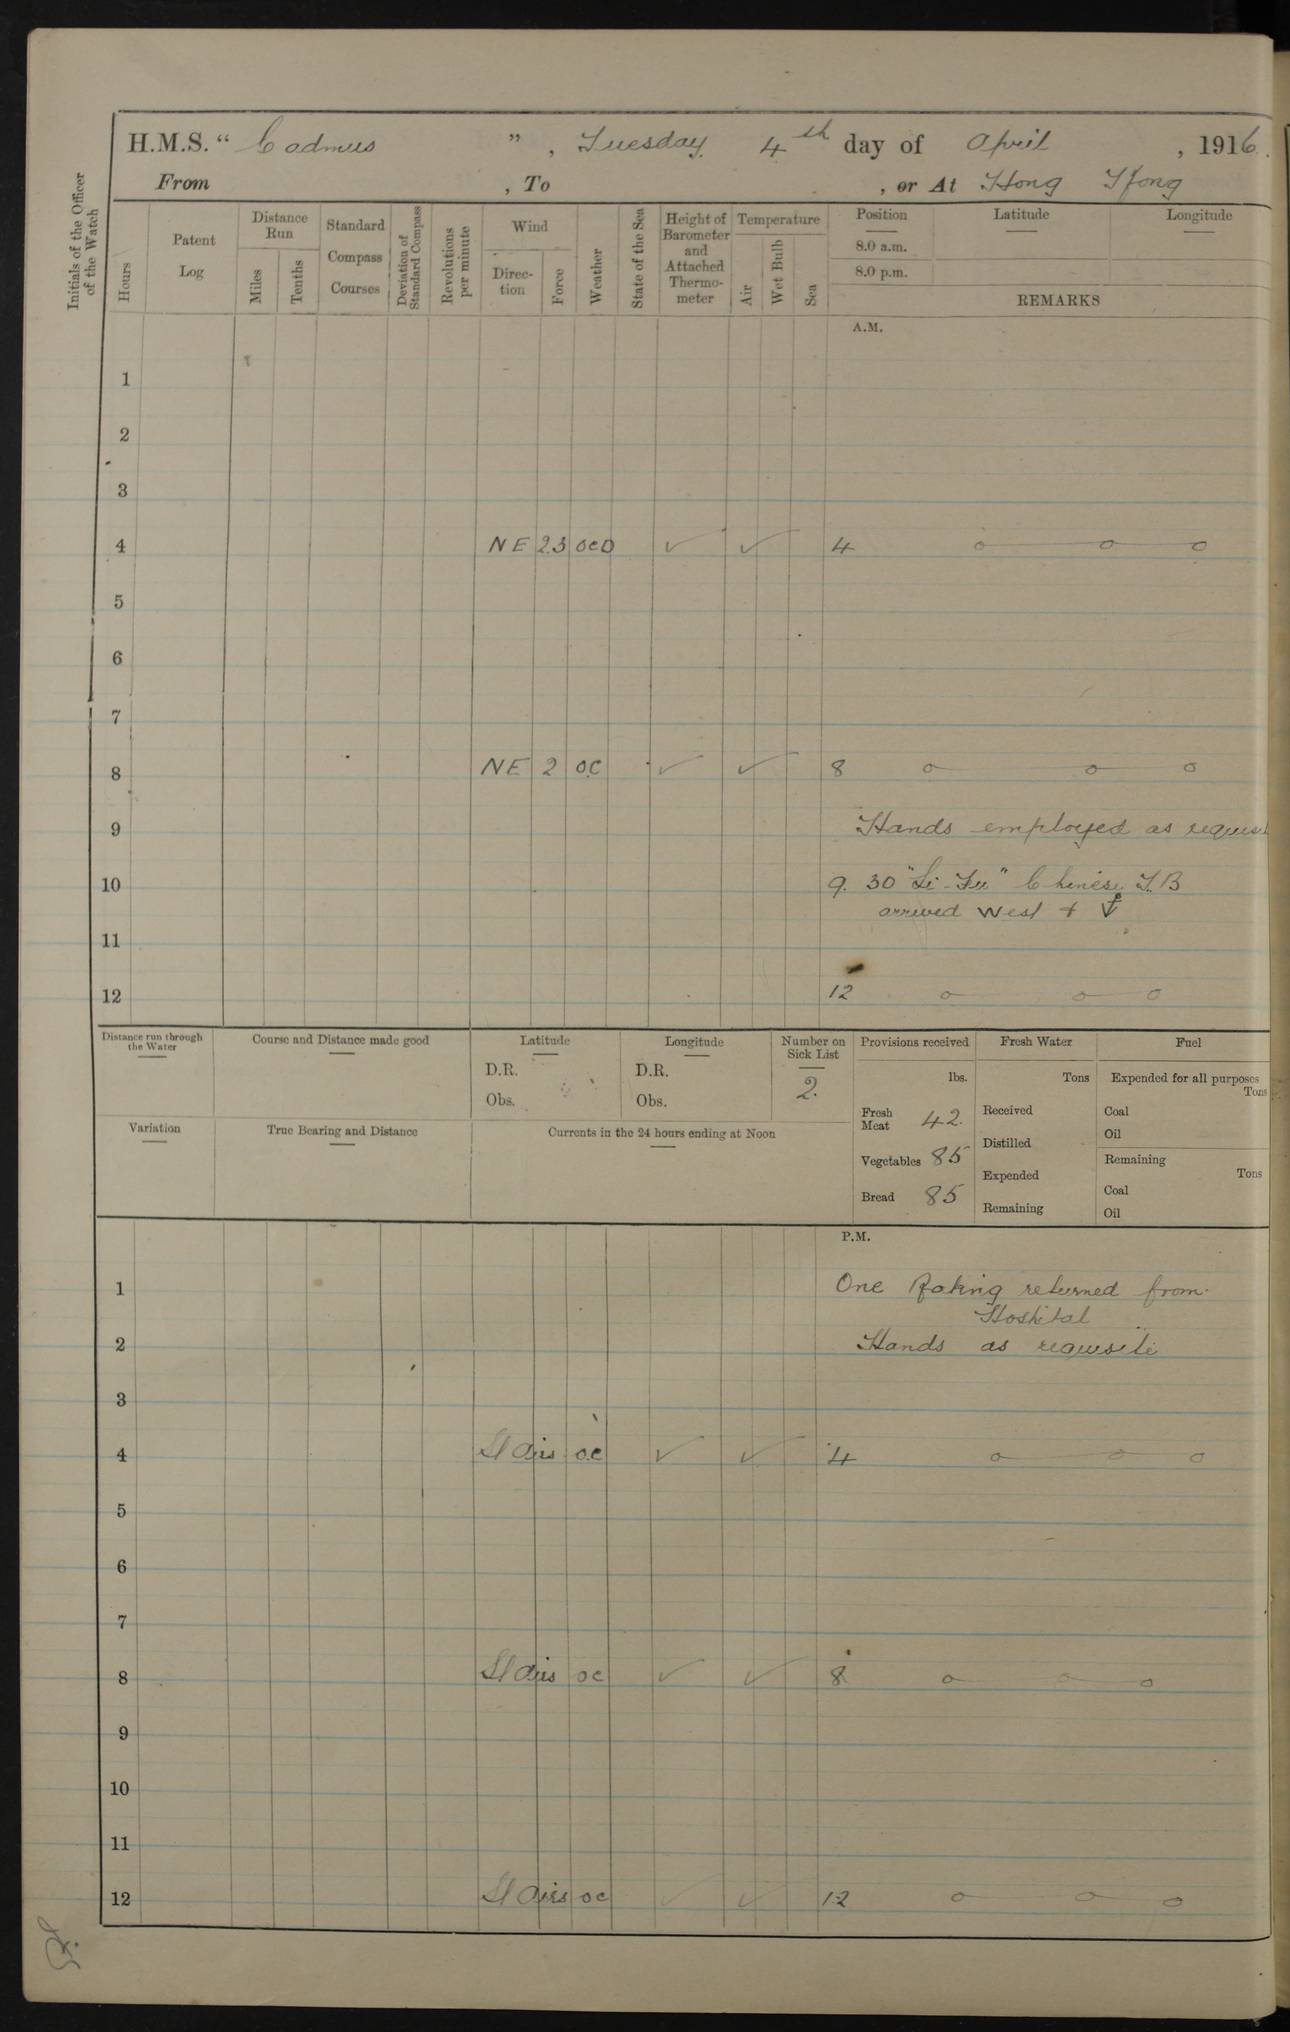 H.M.S. “ Cadmus ” , Tuesday 4th day of April , 1916.
From , To , or At Hong Kong
Initials of the Officer of the Watch
Hours
Patent Log
Distance Run
Miles
Tenths
Standard Compass Courses
Deviation of Standard Compass
Revolutions per minute
Wind
Direc-tion
Force
Weather
State of the Sea
Height of Barometer and Attached Thermo-meter
Temperature
Air
Wet Bulb
Sea
Position Latitude Longitude
8.0 a.m.
8.0 p.m.
REMARKS
A.M.
1
2
3
4 NE 2.3 OCD ✓ ✓ 4 o o o
5
6
7
8 NE 2 OC ✓ ✓ 8 o o o
9 Hands employed as requisi
10 9. 30 "Li-" Chinese T.B
arrived West + ⚓
11
12 12 o o o
Distance run through the Water
Course and Distance made good
Latitude
D.R.
Obs.
Longitude
D.R.
Obs.
Number on Sick List
2.
Variation
True Bearing and Distance
Currents in the 24 hours ending at Noon
Provisions received
lbs.
Fresh Meat 42.
Vegetables 85
Bread 85
Fresh Water
Tons
Received
Distilled
Expended
Remaining
Fuel
Expended for all purposes
Tons
Coal
Oil
Remaining
Tons
Coal
Oil
P.M.
1 One Rating returned from
Hospital
2 Hands as requisite
3
4 Lt Airs oc ✓ ✓ 4 o o o
5
6
7
8 Lt Airs oc ✓ ✓ 8 o o o
9
10
11
12 Lt Airs oc ✓ ✓ 12 o o o